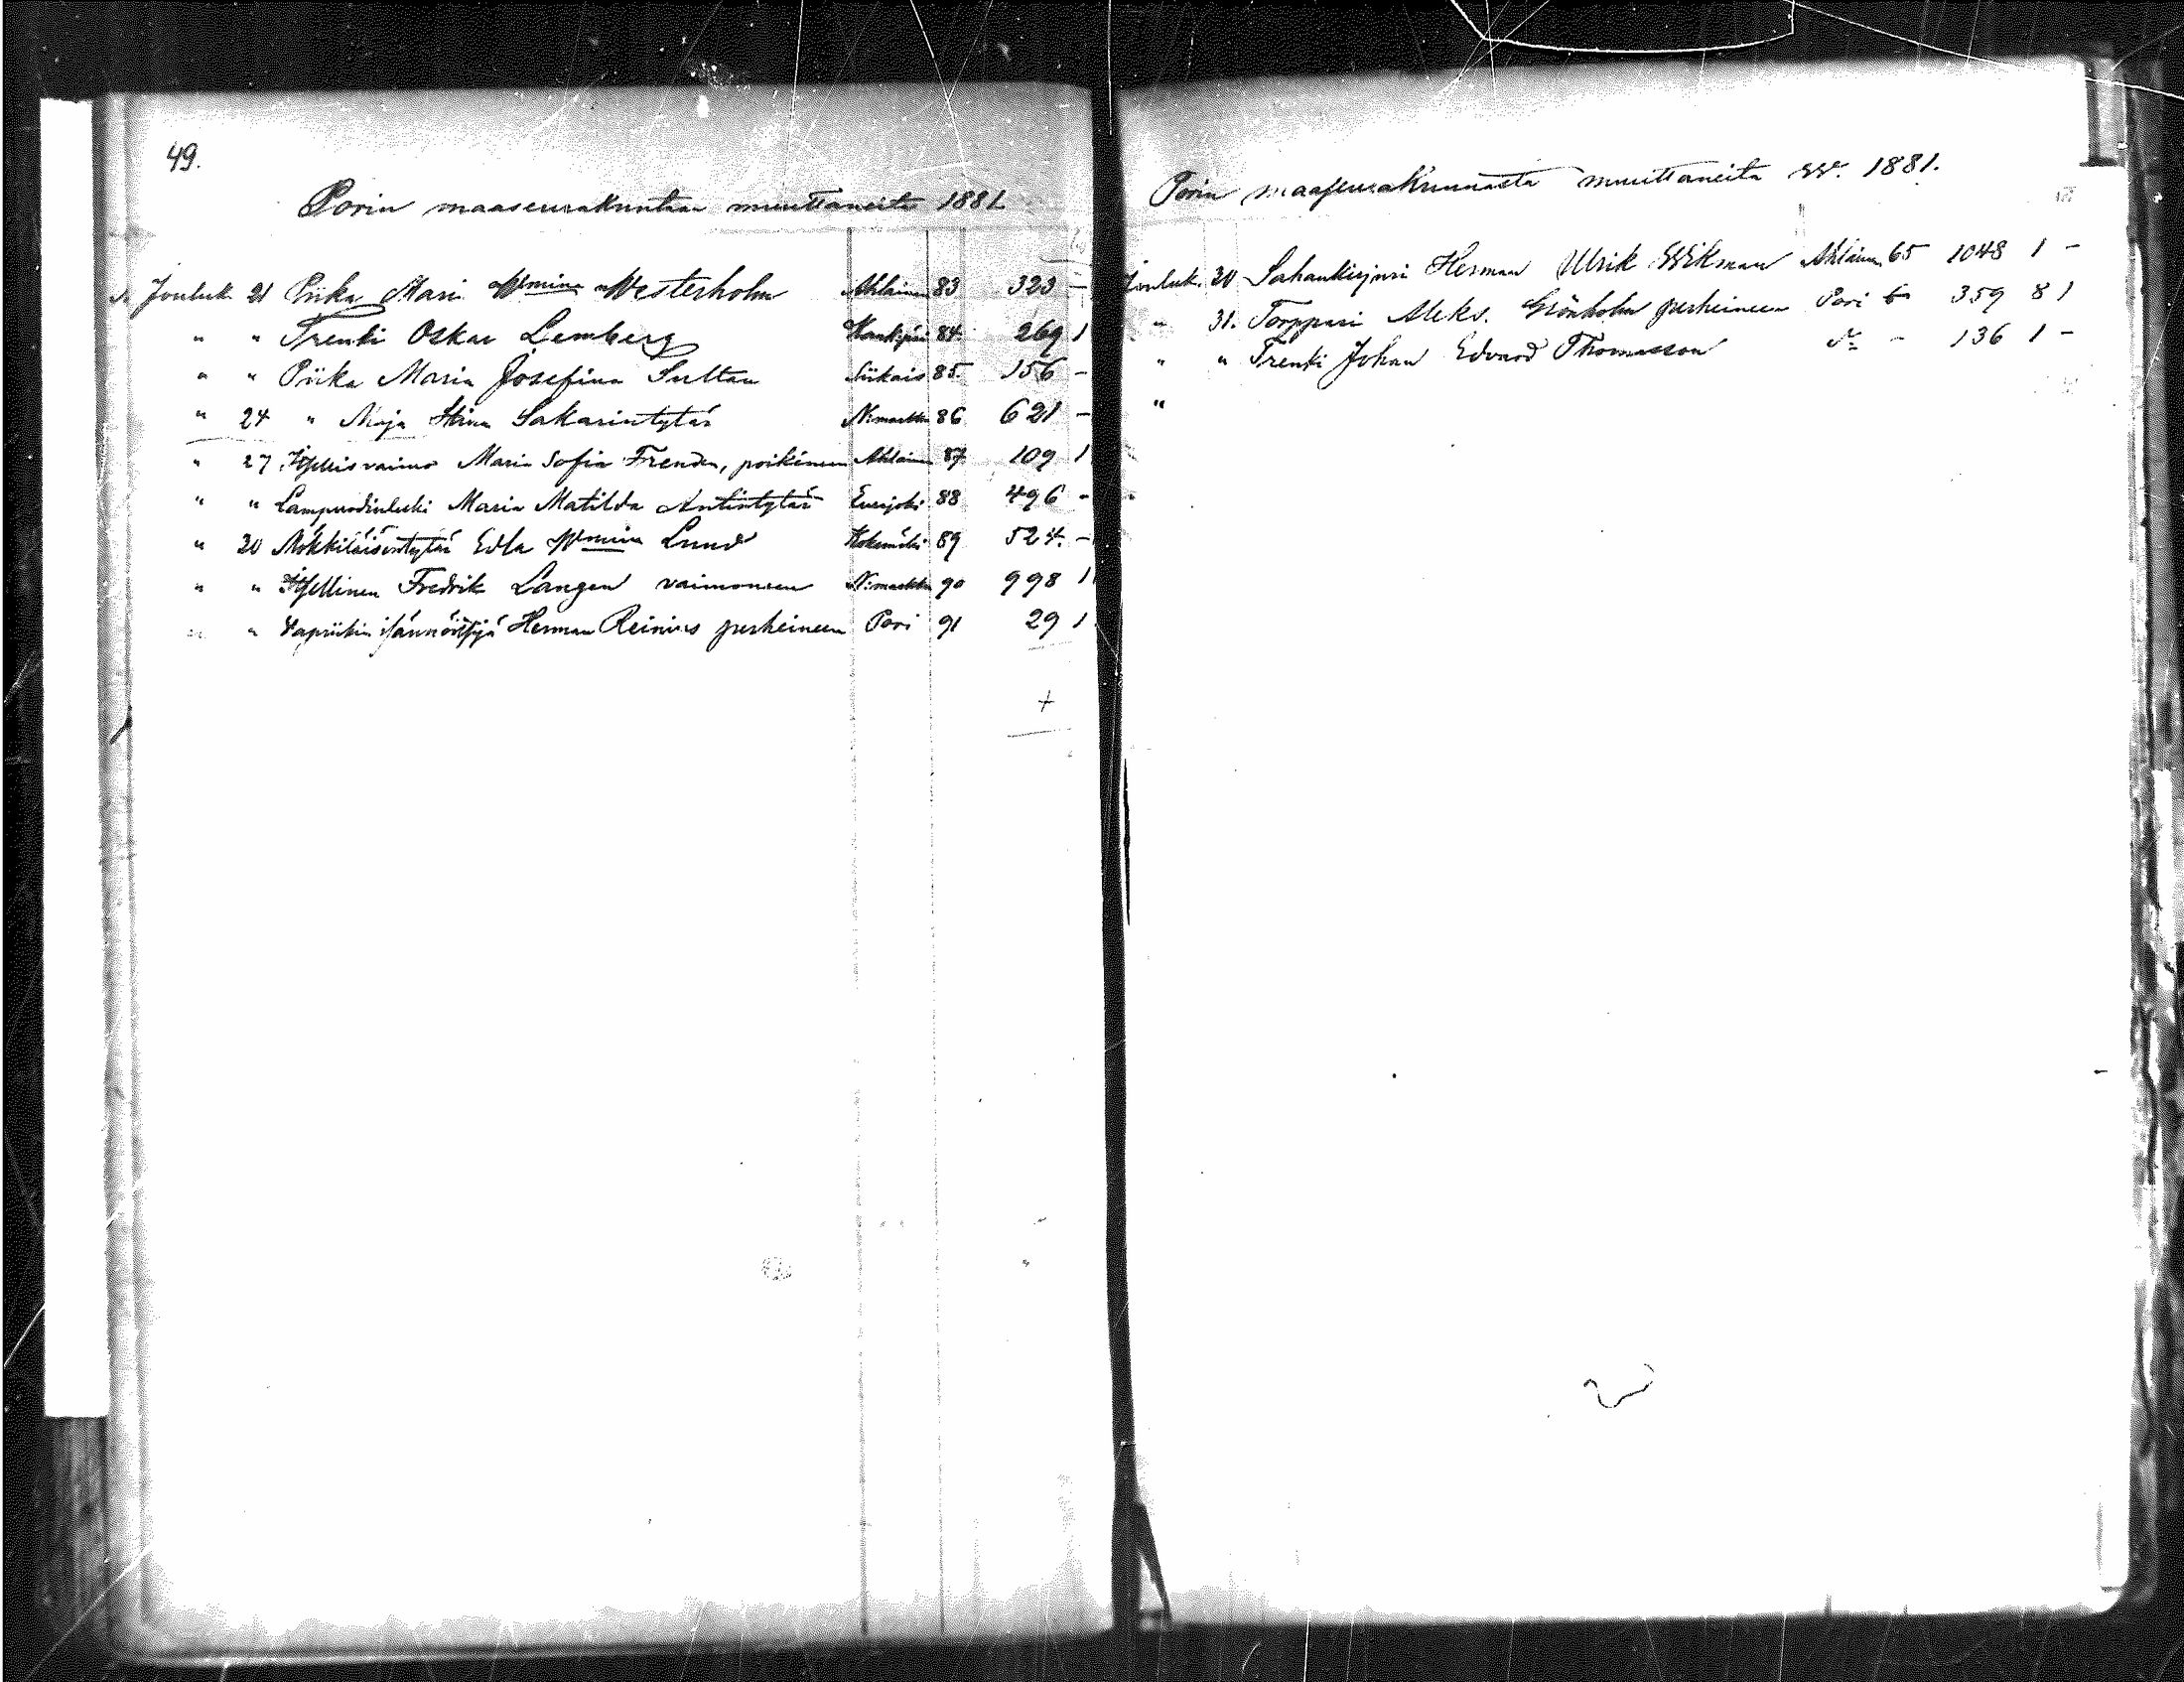 49.
Porin maaseurakuntaan muuttaneita 1881.
Jouluk. 21 Piika Maria Wmina Westerholm Ahlainen 83 323 -
" " Trenki Oskar Lemberg Kankpää 84. 269 1
" " Piika Maria Josefina Sultan Siikais 85. 156 -
" 24 " Maja Stina Sakarintytär N:markku 86 621 -
" 27 Itsellisvaimo Maria Sofia Frenden, poikineen Ahlainen 87. 109 1
" " Lampuodinleski Maria Matilda Antintytär Eurajoki 88 496 -
" 30 Mökkiläisentytär Edla Wmina Lund Kokemäki 89 524. -
" " Itsellinen Fredrik Langen vaimoneen N:markku 90 998 1
" " Vapriikin isännöitsijä Herman Reinius perheineen Pori 91 29 1
+
Porin maaseurakunnasta muuttaneita vv. 1881.
Jouluk. 30 Sahankirjuri Herman Ulrik Wikman Ahlainen 65 1048 1 -
" 31. Torppari Aleks. Grönholm perheineen Pori 359 8 1
" " Trenki Johan Edvard Thomasson d:o - 136 1 -
"